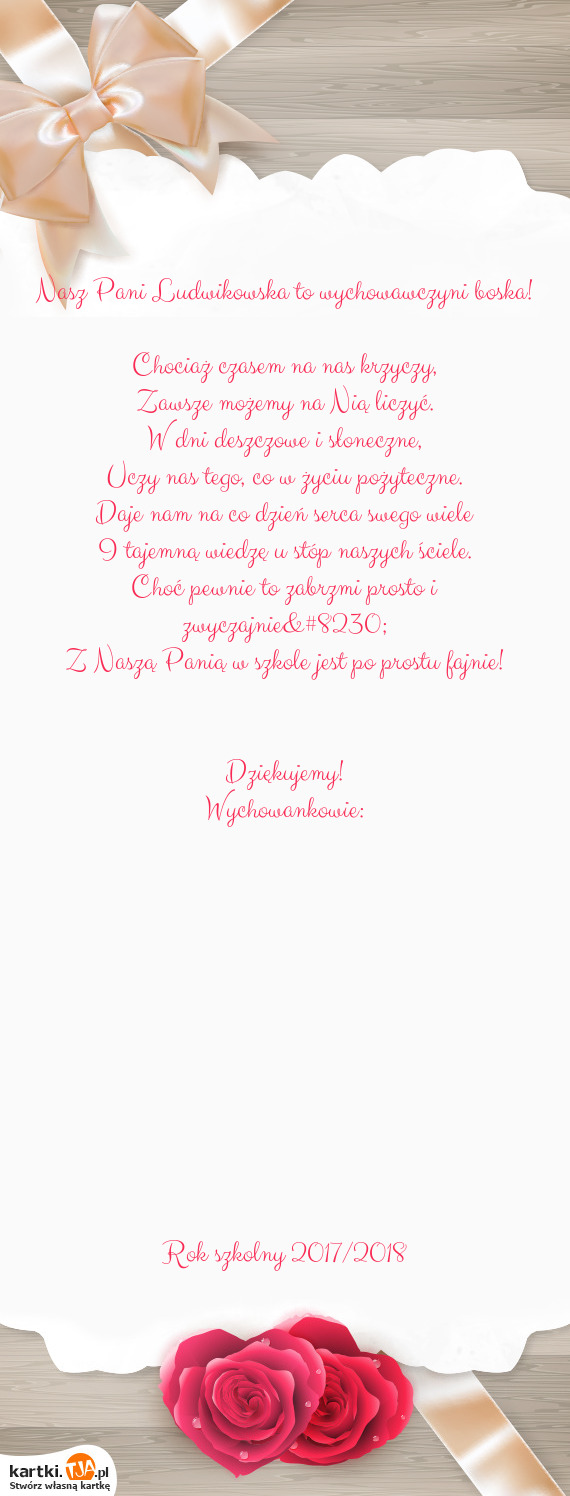 Nasz Pani Ludwikowska to wychowawczyni boska!
Chociaż czasem na nas krzyczy,
Zawsze możemy na Nią liczyć.
W dni deszczowe i słoneczne,
Uczy nas tego, co w życiu pożyteczne.
Daje nam na co dzień serca swego wiele
I tajemną wiedzę u stóp naszych ściele.
Choć pewnie to zabrzmi prosto i
zwyczajnie&#8230;
Z Naszą Panią w szkole jest po prostu fajnie!
Dziękujemy!
Wychowankowie:
Rok szkolny 2017/2018
kartki.TJA.pl
Stwórz własną kartkę